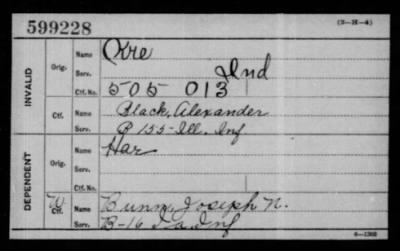 599228 (3-H-4)
INVALID
Orig.
Name Ore
Serv. Ind
Ctf. No. 505 013
Ctf.
Name Black, Alexander
Serv. B 155 Ill. Inf
DEPENDENT
Orig.
Name Har
Serv.
Ctf. No.
W Ctf.
Name Bunn, Joseph N.
Serv. B-16 Ia Inf
6-1380